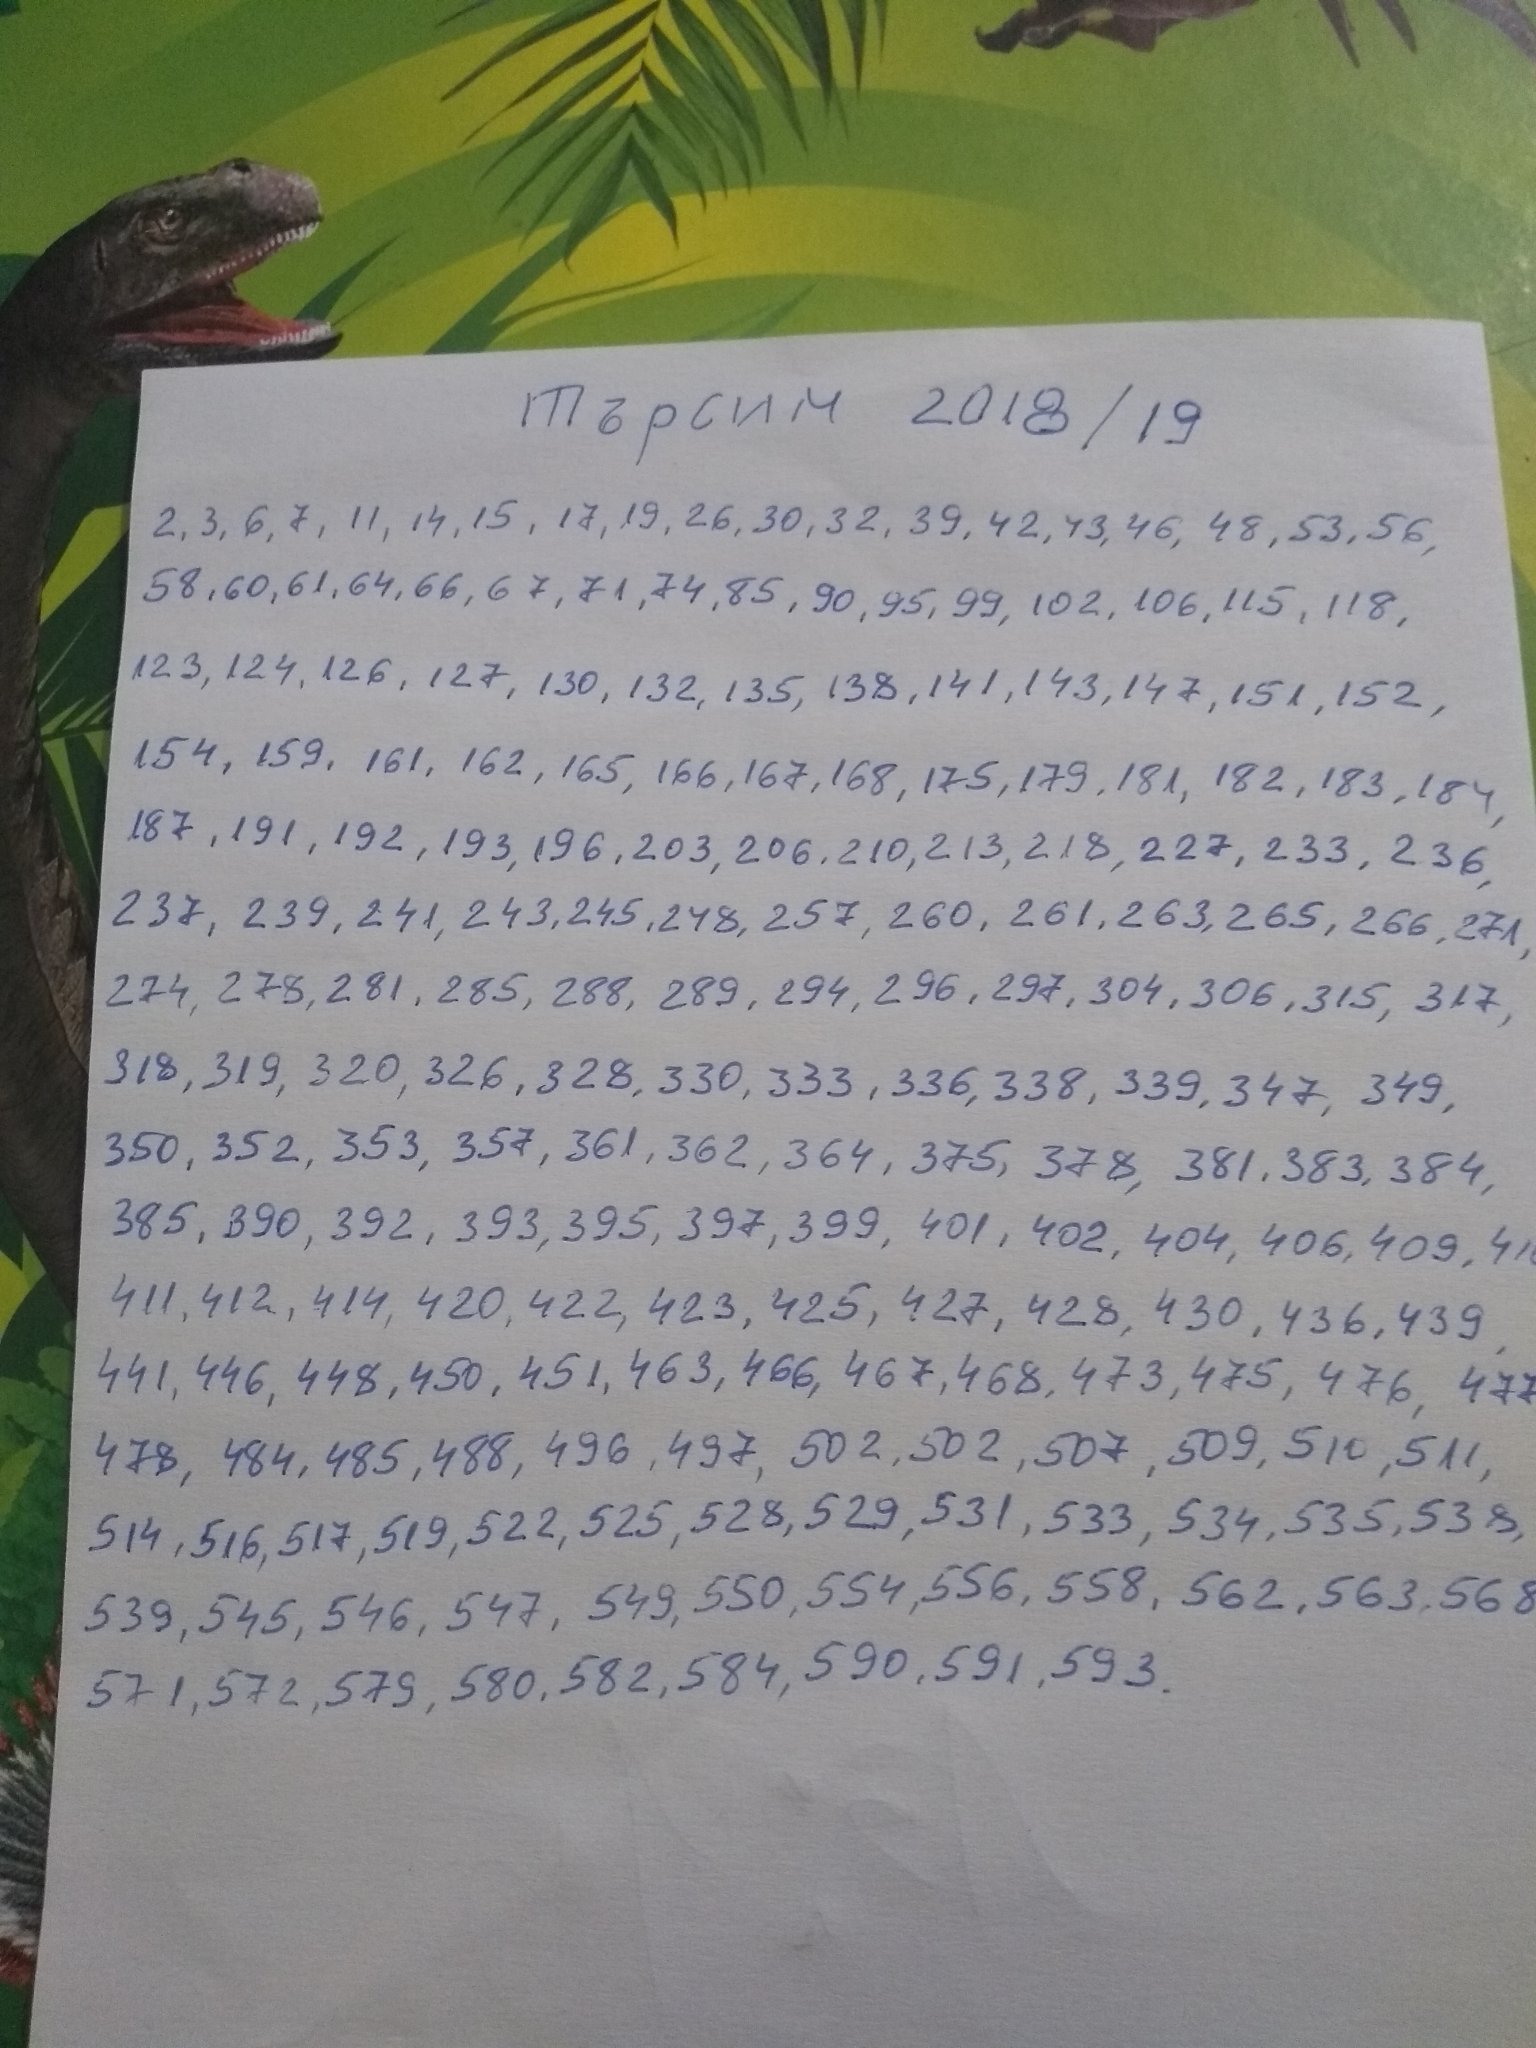 Търсим 2018/19
2, 3, 6, 7, 11, 14, 15, 17, 19, 26, 30, 32, 39, 42, 43, 46, 48, 53, 56,
58, 60, 61, 64, 66, 67, 71, 74, 85, 90, 95, 99, 102, 106, 115, 118,
123, 124, 126, 127, 130, 132, 135, 138, 141, 143, 147, 151, 152,
154, 159, 161, 162, 165, 166, 167, 168, 175, 179, 181, 182, 183, 184,
187, 191, 192, 193, 196, 203, 206, 210, 213, 218, 227, 233, 236,
237, 239, 241, 243, 245, 248, 257, 260, 261, 263, 265, 266, 271,
274, 278, 281, 285, 288, 289, 294, 296, 297, 304, 306, 315, 317,
318, 319, 320, 326, 328, 330, 333, 336, 338, 339, 347, 349,
350, 352, 353, 357, 361, 362, 364, 375, 378, 381, 383, 384,
385, 390, 392, 393, 395, 397, 399, 401, 402, 404, 406, 409,
411, 412, 414, 420, 422, 423, 425, 427, 428, 430, 436, 439,
441, 446, 448, 450, 451, 463, 466, 467, 468, 473, 475, 476, 477
478, 484, 485, 488, 496, 497, 502, 502, 507, 509, 510, 511,
514, 516, 517, 519, 522, 525, 528, 529, 531, 533, 534, 535, 538,
539, 545, 546, 547, 549, 550, 554, 556, 558, 562, 563, 568
571, 572, 579, 580, 582, 584, 590, 591, 593.